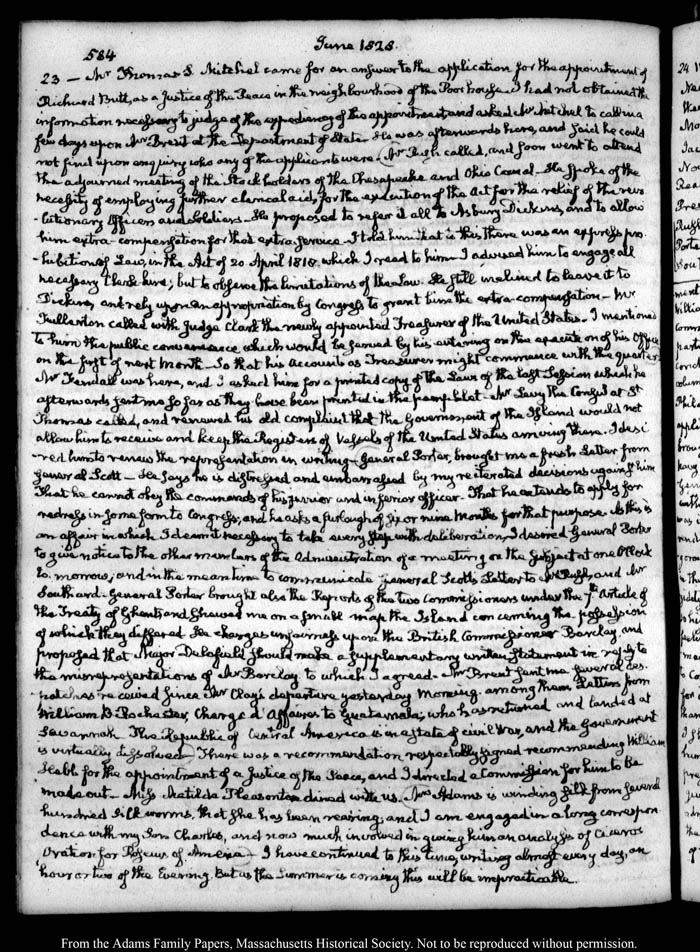 584
June 1828.
23 — Mr Thomas S. Mitchel came for an answer to the application for the appointment of
Richard Butt, as a Justice of the Peace in the neighbourhood of the Poor house. I had not obtained the
information necessary to judge of the expediency of the appointment and asked Mr Mitchel to call in a
few days upon Mr Brent at the Department of State. He was afterwards here, and said he could
not find upon enquiry who any of the applicants were. Mr Rush called, and soon went to attend
the adjourned meeting of the Stockholders of the Chesapeake and Ohio Canal. He spoke of the
necessity of employing further clerical aid, for the execution of the Act for the relief of the revo
-lutionary Officers and Soldiers. He proposed to refer it all to Asbury Dickins, and to allow
him extra-compensation for that extra service. I told him that to this there was an express pro
-hibition of Law, in the Act of 20. April 1818. which I read to him. I advised him to engage all
necessary clerks hire; but to observe the limitations of the Law. He still inclined to leave it to
Dickins, entirely upon an appropriation by Congress to grant him the extra-compensation — Mr
Fullerton called with Judge Clark the newly appointed Treasurer of the United States. I mentioned
to him the public convenience which would be served by his entering on the execution of his Office
on the first of next Month. So that his Accounts as Treasurer might commence with the quarter.
Mr Kendall was here, and I asked him for a printed copy of the Laws of the last Session which he
afterwards sent me so far as they have been printed in the pamphlet. Mr Levy the Consul at St
Thomas called, and renewed his old complaint that the Government of the Island would not
allow him to receive and keep the Registers of Vessels of the United States arriving there. I desi
-red him to renew the representation in writing — General Porter, brought me a fresh Letter from
General Scott — He says he is distressed and embarrassed by my reiterated decisions against him
That he cannot obey the commands of his junior and inferior officer. That he intends to apply for
redress in some form to Congress, and he asks a furlough of six or nine Months for that purpose. As this is
an affair in which I deem it necessary to take every step with deliberation, I desired General Porter
to give notice to the other members of the Administration of a meeting on the subject at one O'Clock
to-morrow, and in the mean time to communicate General Scott's Letter to Mr Rush, and Mr
Southard. General Porter brought also the Reports of the two Commissioners under the 7th Article of
the Treaty of Ghent, and shewed me on a small map the Island concerning the possession
of which they differed. He charges unfairness upon the British Commissioner Barclay, and
proposed that Major Delafield should make a supplementary written Statement in reply to
the misrepresentations of Mr Barclay to which I agreed. Mr Brent sent me several des.
-patches received since Mr Clay's departure yesterday Morning. among them Letters from
William B. Rochester, Chargé d'Affaires to Guatemala, who has returned and landed at
Savannah. The Republic of Central America is in a state of civil War, and the Government
is virtually dissolved. There was a recommendation respectably signed recommending William
Hebb for the appointment of a Justice of the Peace, and I directed a Commission for him to be
made out. Miss Matilda Pleasonton dined with us. Mrs Adams is winding silk from several
hundred silk worms, that she has been rearing, and I am engaged in a long correspon
dence with my Son Charles, and now much involved in giving him an analysis of Cicero's
Oration for Roscius of Ameria — I have continued to this time, writing almost every day, an
hour or two of the Evening. But as the Summer is coming this will be impracticable.
From the Adams Family Papers, Massachusetts Historical Society. Not to be reproduced without permission.